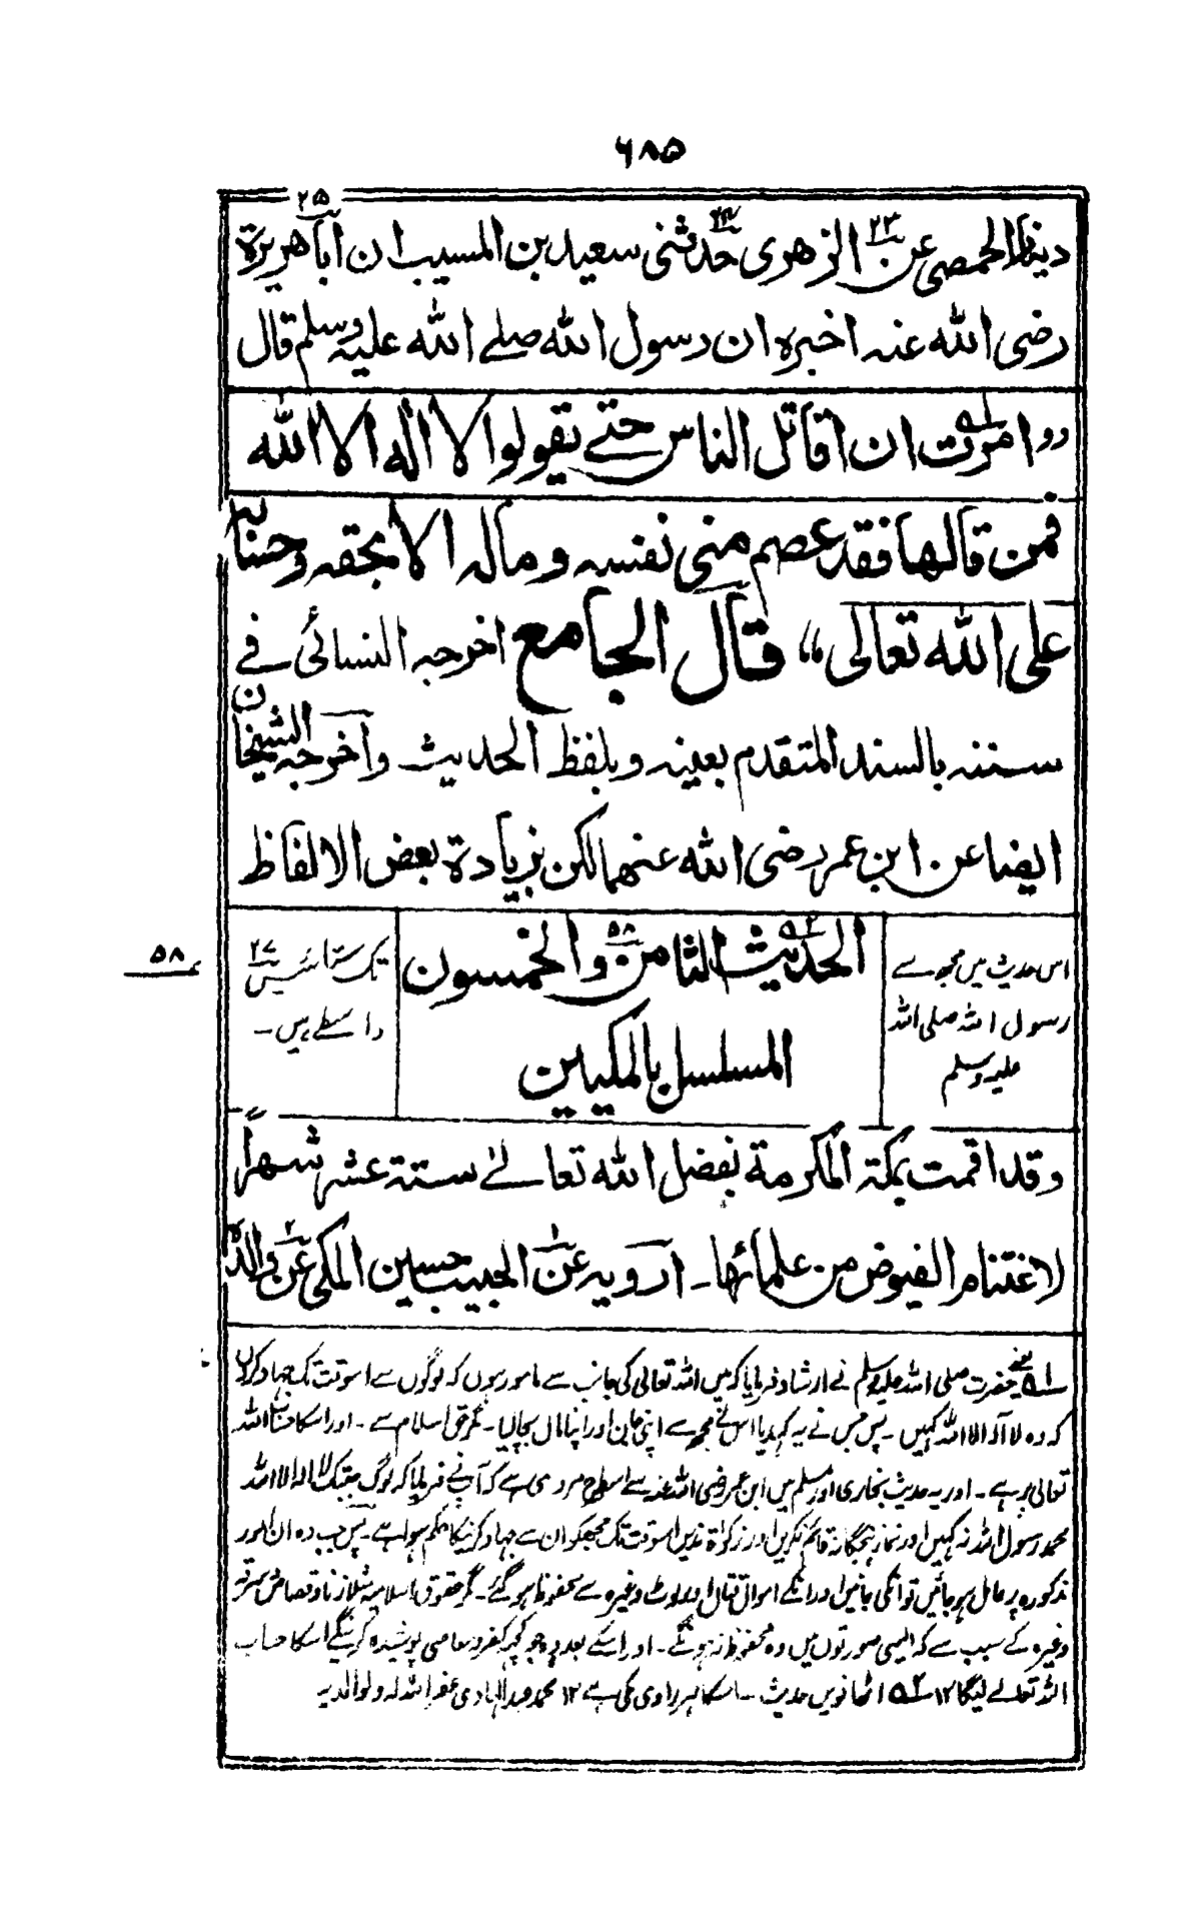 ۶۸۵
دینار الحمصی عن ۲۳ الزهری حدثنی ۲۴ سعید بن المسیب ان اباهریرة ۲۵
رضی الله عنه اخبره ان رسول الله صلے الله علیه وسلم قال
،، امرت ان اقاتل الناس حتے یقولوا لا اله الا الله
فمن قالها فقد عصم منی نفسه وماله الا بحقه وحسابه
علی الله تعالی،، قال الجامع اخرجه النسائی فے
سننه بالسند المتقدم بعینه وبلفظ الحدیث واخرجه الشیخان
ایضا عن ابن عمر رضی الله عنهما لکن بزیادة بعض الالفاظ
اس حدیث میں مجھ سے
رسول اللہ صلی اللہ
علیہ وسلم
الحدیث الثامن ۵۸ والخمسون
المسلسل بالمکیین
تک ستائیس ۲۷
واسطے ہیں۔
۵۸
وقد اقمت بمکة المکرمة بفضل الله تعالے ستة عشر شهراً
لاغتنام الفیوض من علمائها۔ ارویه عن ۱ الحبیب حسین المکی عن ۲ والده
۱ یعنے حضرت صلی اللہ علیہ وسلم نے ارشاد فرمایا کہ میں اللہ تعالی کی جانب سے مامور ہوں کہ لوگوں سے اسوقت تک جہاد کروں
کہ وہ لا الہ الا اللہ کہیں۔ پس جس نے یہ کہدیا اس نے مجھ سے اپنی جان اور اپنا مال بچا لیا۔ مگر حق اسلام سے۔ اور اسکا حساب اللہ
تعالی پر ہے۔ اور یہ حدیث بخاری اور مسلم میں ابن عمر رضی اللہ عنہ سے اسطرح مروی ہے کہ آپنے فرمایا کہ لوگ جبتک لا الہ الا اللہ
محمد رسول اللہ نہ کہیں اور نماز پنجگانہ قائم نکریں اور زکواة ندیں اسوقت تک مجھکو ان سے جہاد کرنیکا حکم ہوا ہے۔ پس جب وہ ان امور
مذکورہ پر عامل ہوجائیں تو انکی جانیں اور انکے اموال قتال اور لوٹ وغیرہ سے محفوظ ہو گئے۔ مگر حقوق اسلامیہ مثلاً زنا و قصاص سرقہ
وغیرہ کے سبب سے کہ ایسی صورتوں میں وہ محفوظ نہ ہونگے۔ اور اسکے بعد وہ جو کچھ کفر و معاصی پوشیدہ کرینگے اسکا حساب
اللہ تعالے لیگا ۱۲ ۲ اٹھانویں حدیث۔ اسکا ہر راوی مکی ہے ۱۲ محمد عبد الہادی غفر اللہ لہ ولوالدیہ